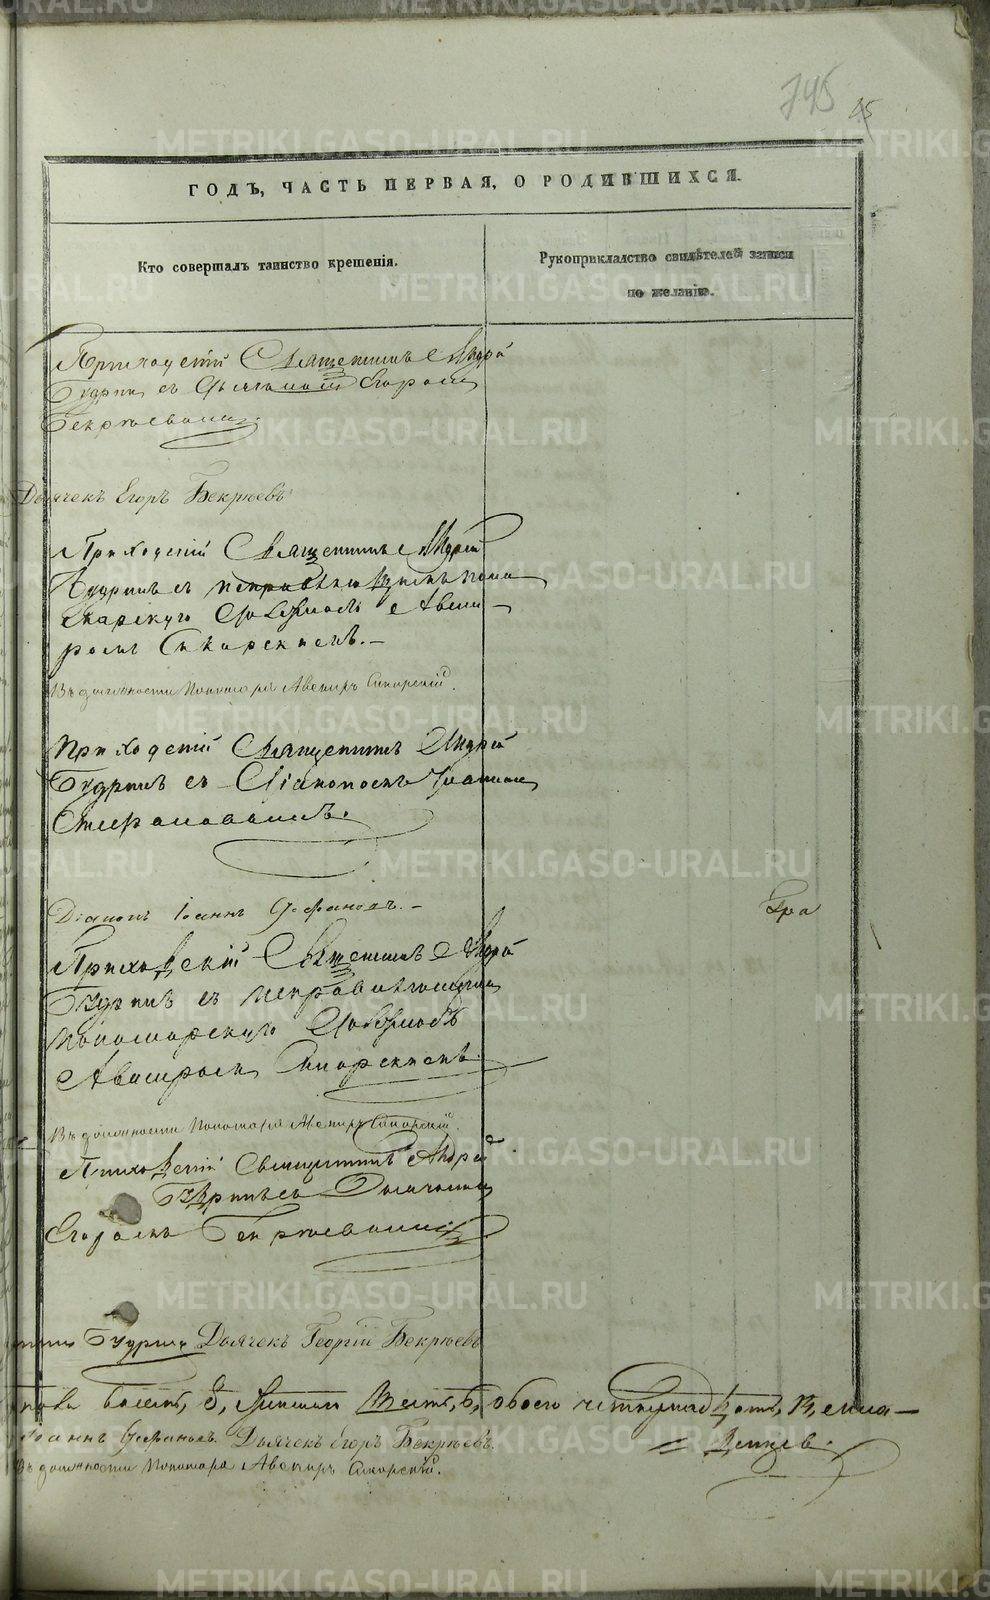 745
45
ГОДЪ, ЧАСТЬ ПЕРВАЯ, О РОДИВШИХСЯ.
Кто совершалъ таинство крещенія.
Рукоприкладство свидѣтелей записи
по желанію.
Приходскій Священникъ Андрей
Будринъ съ Дьячкомъ Егоромъ
Бекрюевымъ.
Дьячекъ Егоръ Бекрюевъ
Приходскій Священникъ Андрей
Будринъ съ исправляющимъ понома
рскую должность Авени
ромъ Сикорскимъ.
Въ должности Пономаря Авениръ Сикорскій.
Приходскій Священникъ Андрей
Будринъ съ Діакономъ Іоанномъ
Стефановымъ.
Діаконъ Іоаннъ Стефановъ.
Гра
Приходскій Священникъ Андрей
Будринъ съ исправляющимъ
пономарскую должность
Авениромъ Сикорскимъ.
Въ должности Пономаря Авениръ Сикорскій.
Приходскій Священникъ Андрей
Будринъ съ Дьячкомъ
Егоромъ Бекрюевымъ
Будринъ Дьячекъ Георгій Бекрюевъ
обоего четырнадцать, 14,
Іоаннъ Стефановъ. Дьячекъ Егоръ Бекрюевъ.
Въ должности Пономаря Авениръ Сикорскій.
METRIKI.GASO-URAL.RU